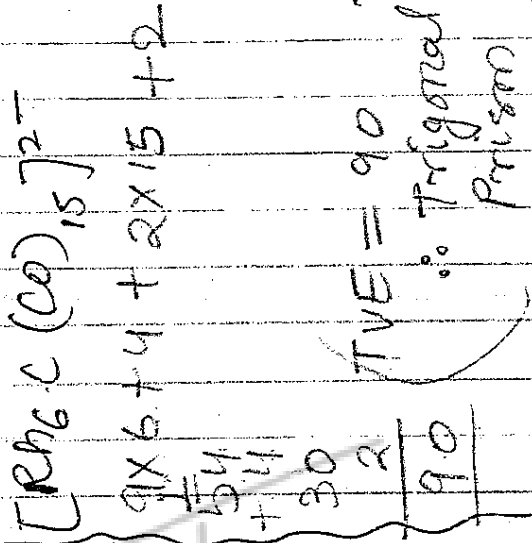 [Rh6 C (CO)15]2-
9x6 + 4 + 2x15 + 2
54
+ 4
30
2
90
TVE = 90
∴ Trigonal
Prism